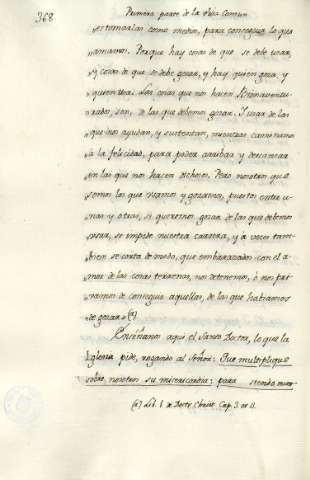 368
Primera parte de la Vida Comun
estornarlas como medios, para conseguir lo que
amamos. Porque hay cosas de que se debe usar,
y cosas de que se debe gozar, y hay quien goza, y
quien usa. Las cosas que nos hacen Bienaventu-
rados, son, de las que debemos gozar. Y usar de las
que nos ayudan, y sustentan, mientras caminamos
a la felicidad, para poder arribar y descansar
en las que nos hacen dichosos. Pero nosotros que
somos los que usamos y gozamos, puestos entre u-
nas y otras, si queremos gozar de las que debemos
usar, se impide nuestra carrera, y a veces tam-
bien se corta de modo, que embarazados con el a-
mor de las cosas terrenas, nos detenemos, ò nos pri-
vamos de conseguir aquellas, de las que habiamos
de gozar. (a)
Enseñanos aqui el Santo Doctor, lo que la
Iglesia pide, rogando al Señor: Que multiplique
sobre nosotros su misericordia; para siendo
(a) Lib. 1 de Doctr. Christ. Cap. 3. et